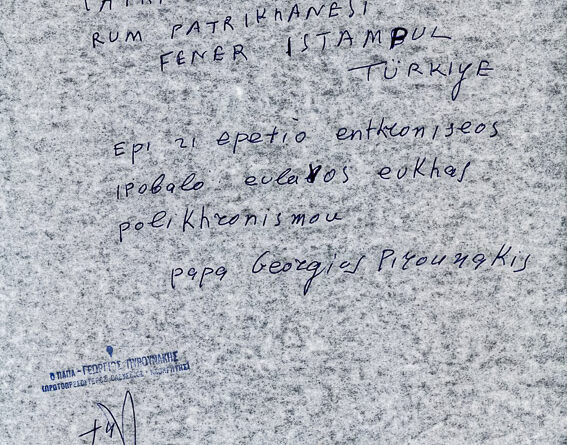 RUM PATRIKhANESI
FENER ISTAMBUL
TÜRKIYE
Epi ti epetio enthroniseos
ipobalo evlavos evkhas
polikhronismou
papa Georgios Pirounakis
Ο ΠΑΠΑ-ΓΕΩΡΓΙΟΣ ΠΥΡΟΥΝΑΚΗΣ